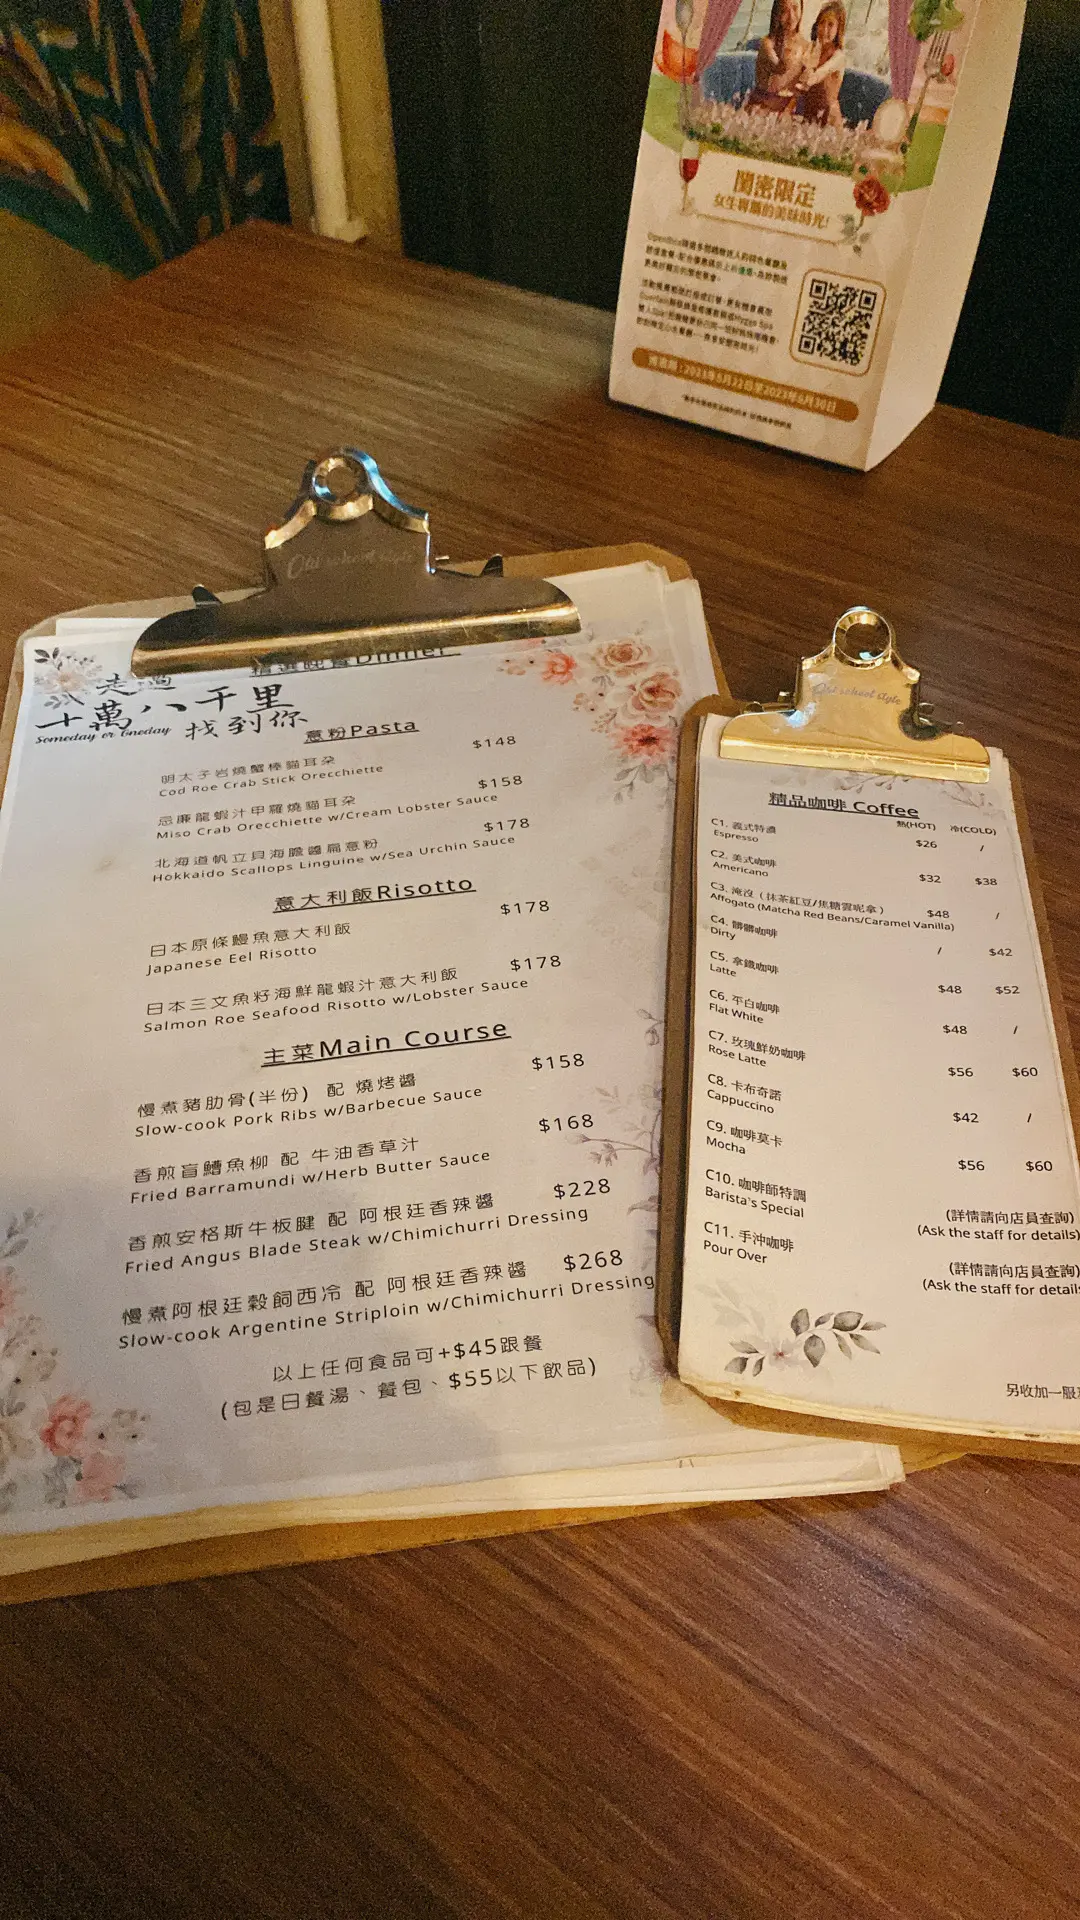 閨密限定
女生專屬的美味時光!
Old school style
精選晚餐Dinner
走過
十萬八千里
找到你
Someday or Oneday
意粉Pasta
$148
明太子岩燒蟹棒貓耳朵
Cod Roe Crab Stick Orecchiette
$158
忌廉龍蝦汁甲羅燒貓耳朵
Miso Crab Orecchiette w/Cream Lobster Sauce
$178
北海道帆立貝海膽醬扁意粉
Hokkaido Scallops Linguine w/Sea Urchin Sauce
意大利飯Risotto
$178
日本原條鰻魚意大利飯
Japanese Eel Risotto
$178
日本三文魚籽海鮮龍蝦汁意大利飯
Salmon Roe Seafood Risotto w/Lobster Sauce
主菜Main Course
$158
慢煮豬肋骨(半份) 配 燒烤醬
Slow-cook Pork Ribs w/Barbecue Sauce
$168
香煎盲鰽魚柳 配 牛油香草汁
Fried Barramundi w/Herb Butter Sauce
$228
香煎安格斯牛板腱 配 阿根廷香辣醬
Fried Angus Blade Steak w/Chimichurri Dressing
$268
慢煮阿根廷穀飼西冷 配 阿根廷香辣醬
Slow-cook Argentine Striploin w/Chimichurri Dressing
以上任何食品可+$45跟餐
(包是日餐湯、餐包、$55以下飲品)
Old school style
精品咖啡 Coffee
熱(HOT) 冷(COLD)
C1. 義式特濃
Espresso
$26 /
C2. 美式咖啡
Americano
$32 $38
C3. 淹沒（抹茶紅豆/焦糖雲呢拿）
Affogato (Matcha Red Beans/Caramel Vanilla)
$48 /
C4. 髒髒咖啡
Dirty
/ $42
C5. 拿鐵咖啡
Latte
$48 $52
C6. 平白咖啡
Flat White
$48 /
C7. 玫瑰鮮奶咖啡
Rose Latte
$56 $60
C8. 卡布奇諾
Cappuccino
$42 /
C9. 咖啡莫卡
Mocha
$56 $60
C10. 咖啡師特調
Barista's Special
(詳情請向店員查詢)
(Ask the staff for details)
C11. 手沖咖啡
Pour Over
(詳情請向店員查詢)
(Ask the staff for details
另收加一服